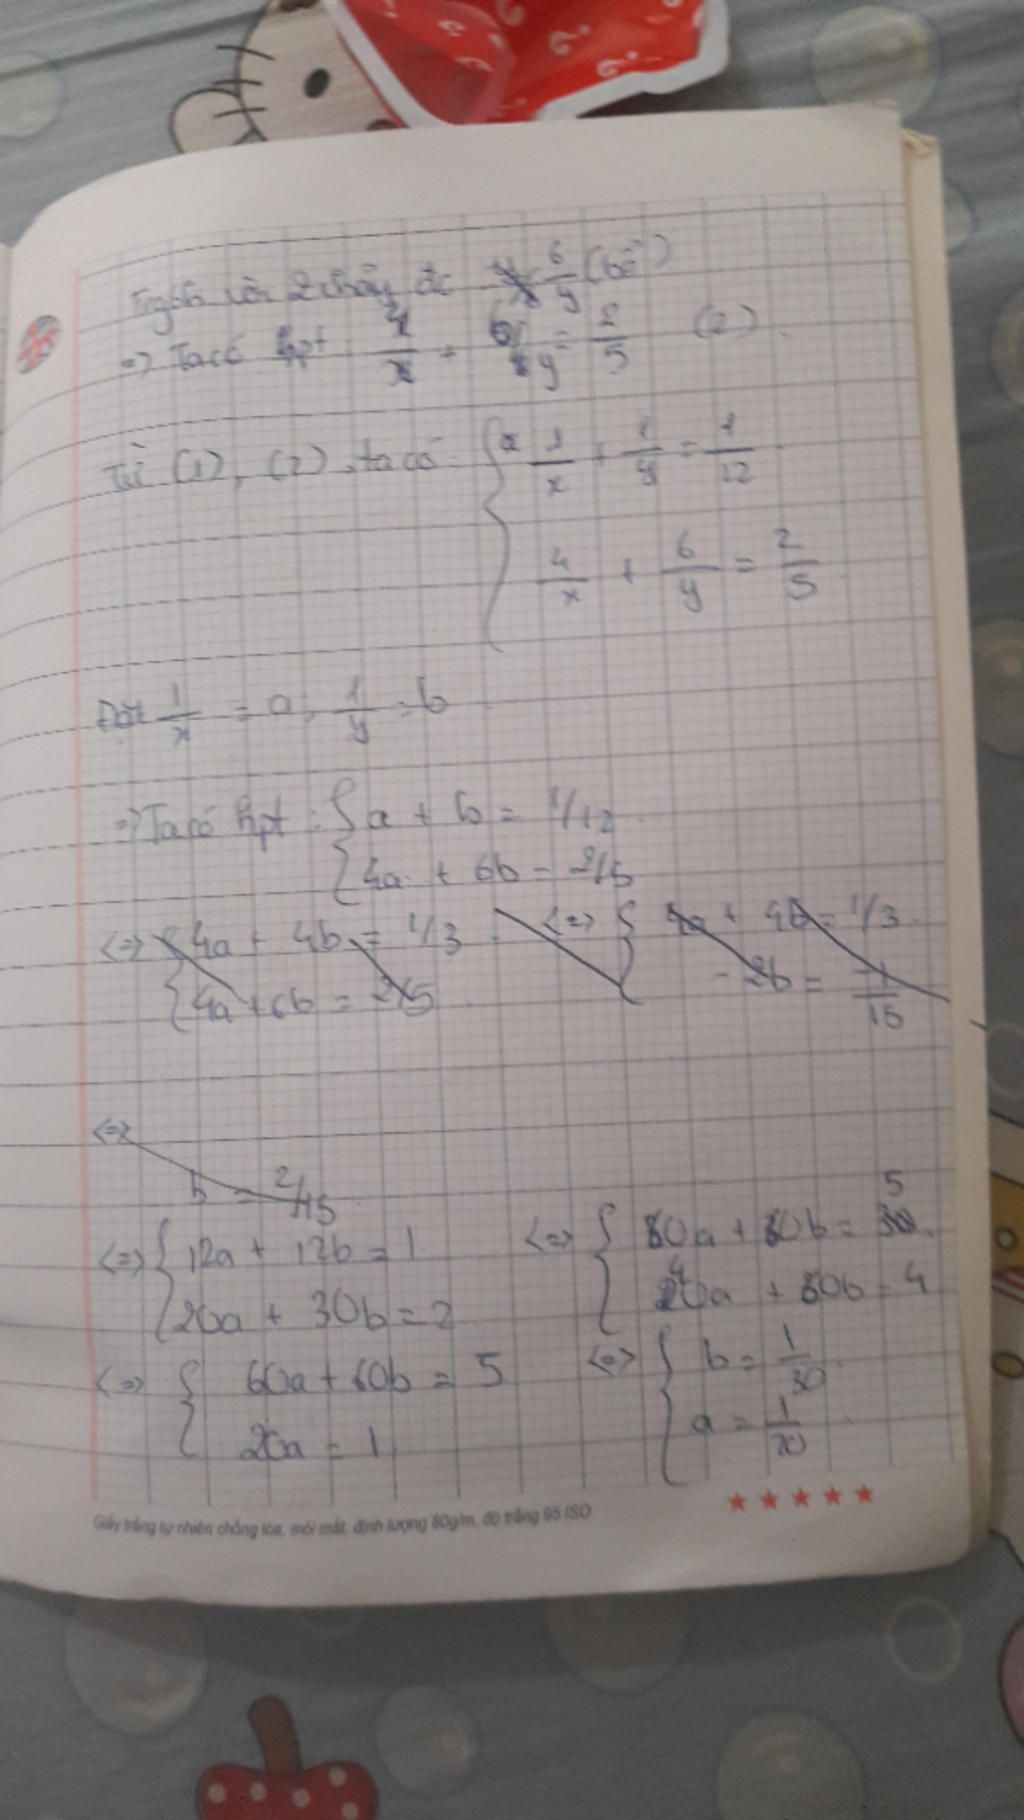 vòi 2 chảy đc 6/y (bể)
=> Ta có hpt: 4/x + 6/y = 2/5 (2).
Từ (1), (2), ta có { 1/x + 1/y = 1/12
4/x + 6/y = 2/5
Đặt 1/x = a; 1/y = b
=> Ta có hpt: { a + b = 1/12
4a + 6b = 2/5
<=> { 4a + 4b = 1/3 <=> { 4a + 4b = 1/3
4a + 6b = 2/5 -2b = -1/15
<=>
b = 2/15
<=> { 12a + 12b = 1 <=> { 60a + 60b = 5
20a + 30b = 2 40a + 60b = 4
<=> { 60a + 60b = 5 <=> { b = 1/30
20a = 1 a = 1/20
Giấy trắng tự nhiên chống lóa, mỏi mắt, định lượng 80g/m, độ trắng 95 ISO